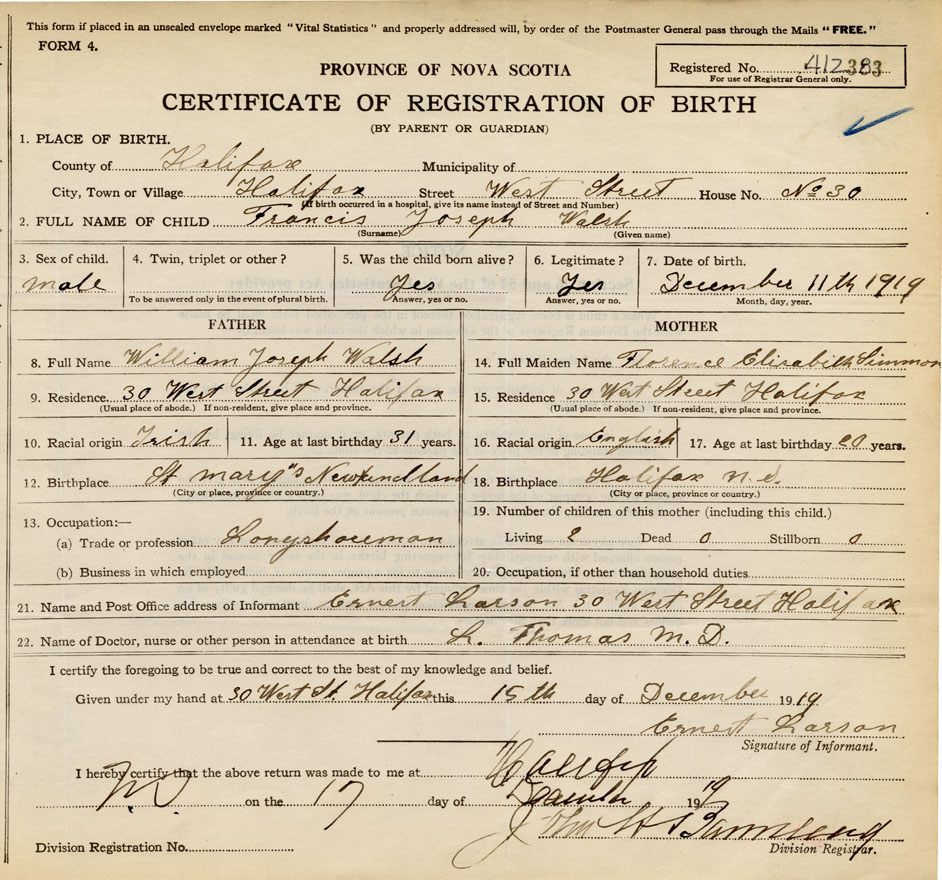 This form if placed in an unsealed envelope marked "Vital Statistics" and properly addressed will, by order of the Postmaster General pass through the Mails "FREE."
FORM 4.
Registered No. 412383
For use of Registrar General only.
PROVINCE OF NOVA SCOTIA
CERTIFICATE OF REGISTRATION OF BIRTH
(BY PARENT OR GUARDIAN)
1. PLACE OF BIRTH.
County of Halifax Municipality of
City, Town or Village Halifax Street West Street House No. No 30
(If birth occurred in a hospital, give its name instead of Street and Number)
2. FULL NAME OF CHILD Francis Joseph Walsh
(Surname) (Given name)
3. Sex of child. 4. Twin, triplet or other? 5. Was the child born alive? 6. Legitimate? 7. Date of birth.
male Yes Yes December 11th 1919
To be answered only in the event of plural birth. Answer, yes or no. Answer, yes or no. Month, day, year.
FATHER MOTHER
8. Full Name William Joseph Walsh 14. Full Maiden Name Florence Elizabeth Simmon
9. Residence 30 West Street Halifax 15. Residence 30 West Street Halifax
(Usual place of abode.) If non-resident, give place and province. (Usual place of abode.) If non-resident, give place and province.
10. Racial origin Irish 11. Age at last birthday 31 years. 16. Racial origin English 17. Age at last birthday 20 years.
12. Birthplace St mary"s Newfundland 18. Birthplace Halifax n.s.
(City or place, province or country.) (City or place, province or country.)
13. Occupation:— 19. Number of children of this mother (including this child.)
(a) Trade or profession Longshoreman Living 2 Dead 0 Stillborn 0
(b) Business in which employed 20. Occupation, if other than household duties
21. Name and Post Office address of Informant Ernest Larson 30 West Street Halifax
22. Name of Doctor, nurse or other person in attendance at birth L. Thomas M.D.
I certify the foregoing to be true and correct to the best of my knowledge and belief.
Given under my hand at 30 West St. Halifax this 15th day of December 1919
Ernest Larson
Signature of Informant.
I hereby certify that the above return was made to me at Halifax
on the 17 day of December 1919
John H
Division Registrar.
Division Registration No.